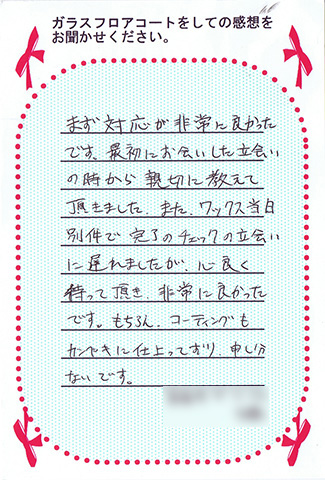 ガラスフロアコートをしての感想を
お聞かせください。
まず対応が非常に良かった
です。最初にお会いした立会い
の時から親切に教えて
頂きました。また、ワックス当日
別件で完了のチェックの立会い
に遅れましたが、心良く
待って頂き、非常に良かった
です。もちろん、コーティングも
カンペキに仕上っており、申し分
ないです。